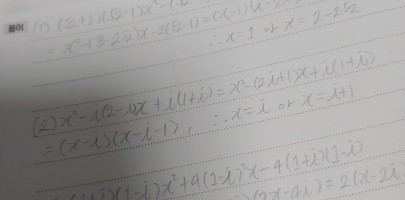 풀이 (1) (√2+1)(√2-1)x²-(√2
= x²-(3-2√2)x-2(√2-1)=(x-1)(x-2
∴x=1 or x=2-2√2
(2) x²-i(2-i)x+i(1+i)=x²-(2i+1)x+i(1+i)
=(x-i)(x-i-1), ∴x=i or x=i+1
+i)(1-i)x²+4(1-i)²x-4(1+i)(1-i)
=2(x-2i